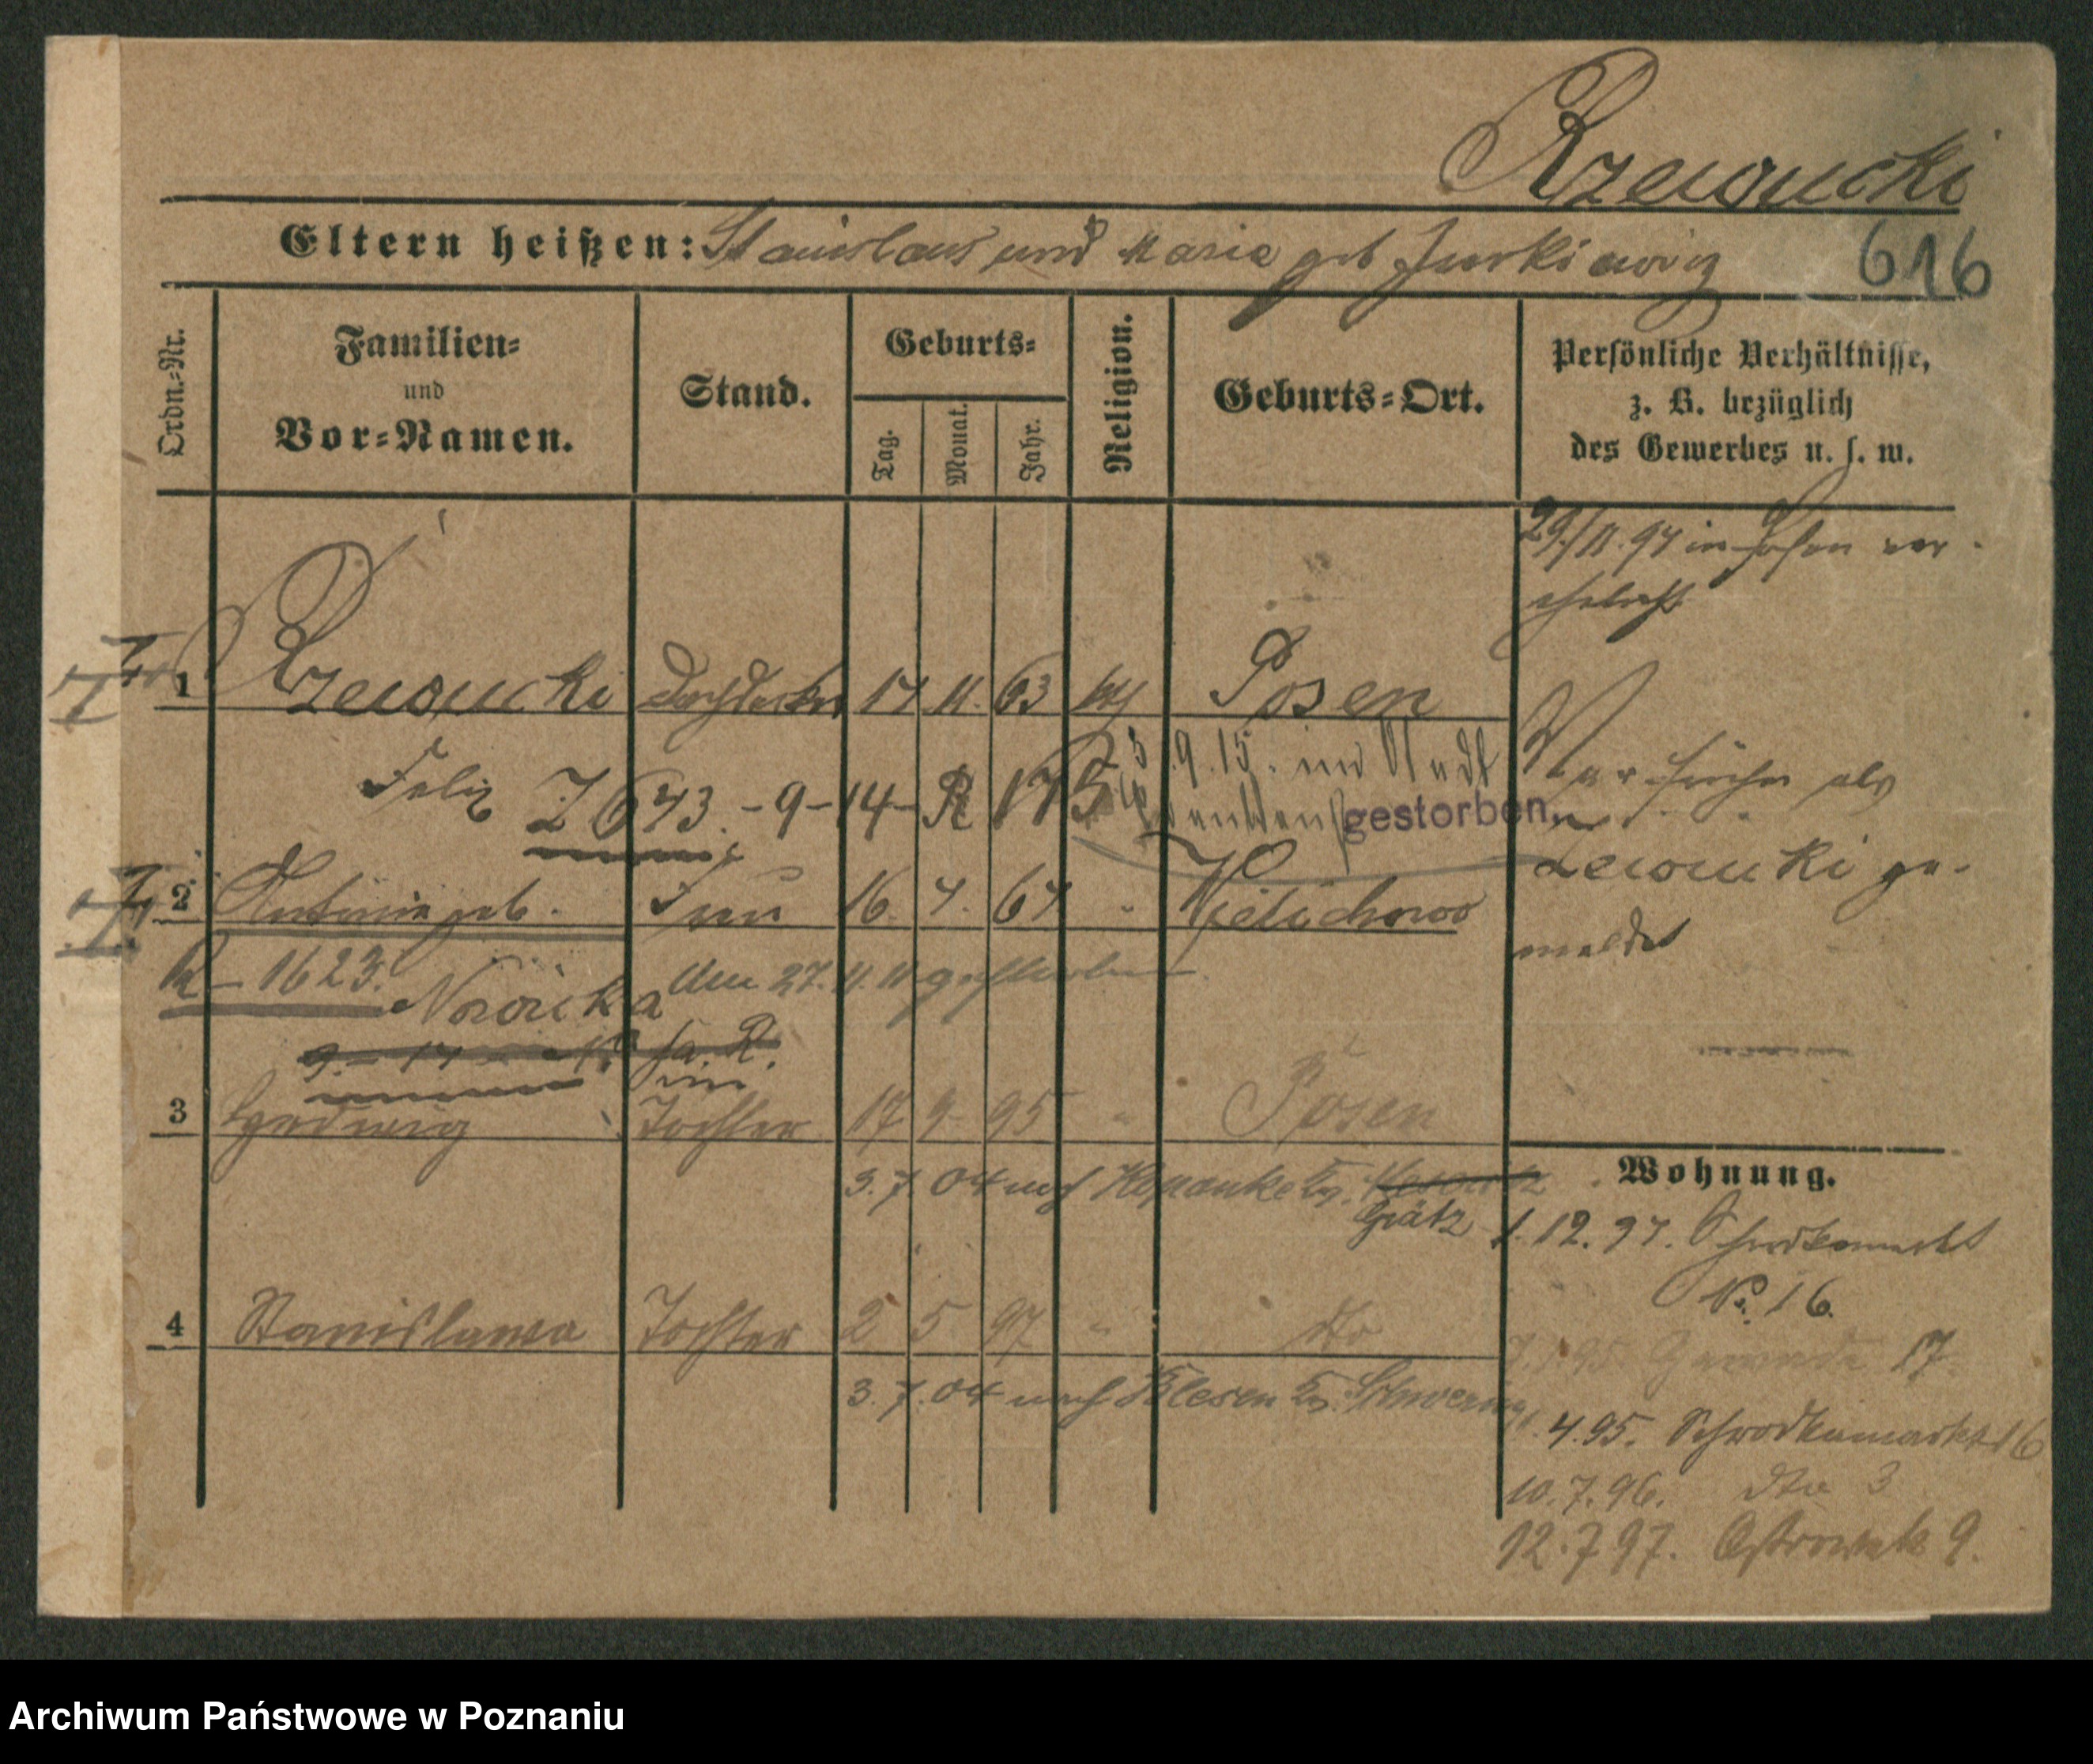 Rzewucki
Eltern heißen: Stanislaus und Maria geb Jurkiewicz
616
Ordn.-Nr.
Familien-
und
Vor-Namen.
Stand.
Geburts-
Tag.
Monat.
Jahr.
Religion.
Geburts-Ort.
Persönliche Verhältnisse,
z. B. bezüglich
des Gewerbes u. s. w.
29/11. 94 in Posen ver-
ehelicht
1 Rzewucki Dachdecker 17 11. 63 kth Posen
Felix Z 643.-9-14-R 175
3.9.15. im Stadt
gestorben.
War früher als
gemeldet
2 Antonie geb. Frau 16. 4. 67 " Wielichowo
R-1623. Nowicka den 27. 11. 11 gestorben
3 Hedwig Tochter 17 9 95 " Posen
3. 7. 04 nach Kz.
Grätz
4 Stanislawa Tochter 2 5 97 " dto
3. 7. 04 nach Blesen Kz. Schwerin
Wohnung.
1. 12. 94. Schrodkamarkt
No. 16.
17
1. 4. 95. Schrodkamarkt 16
10. 7. 96. dto 3
12. 7 97. Ostrowek 9.
Archiwum Państwowe w Poznaniu